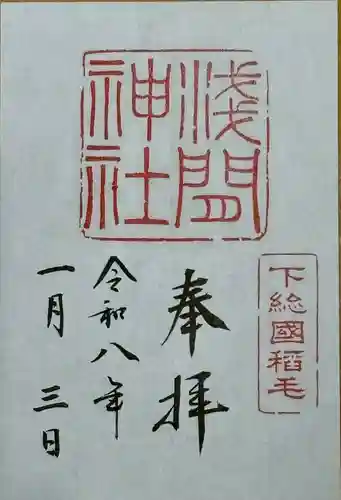 浅間
神社
下総國稻毛
奉拝
令和八年
一月三日